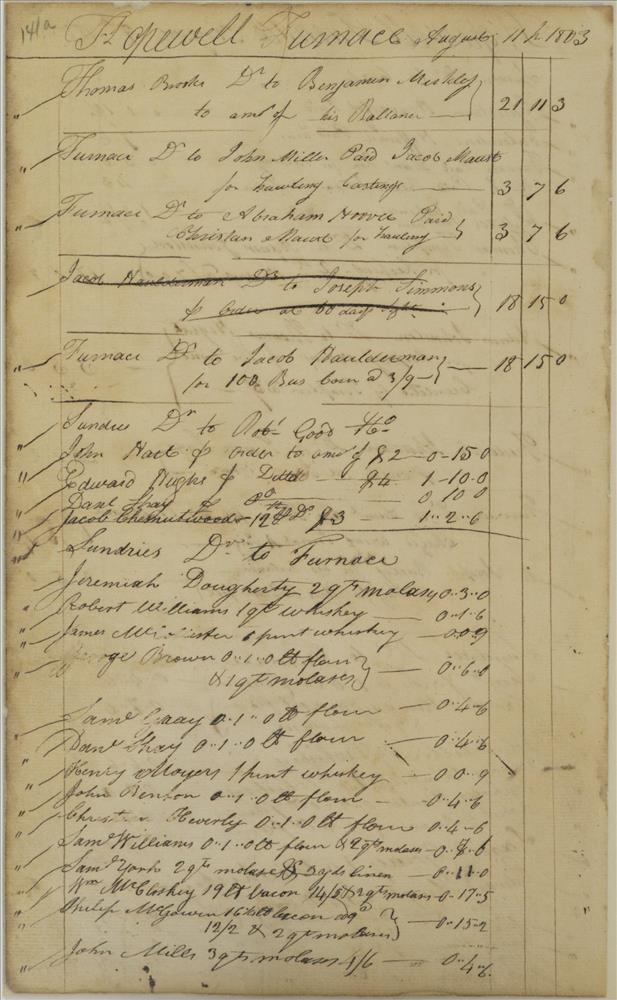 141a
Hopewell Furnace August 11th 1803
Thomas Brooke Dr to Benjamin
to amt of his Ballance — 21 11 3
" Furnace Dr to John Miller Paid Jacob Maust
for hawling Castings — 3 7 6
Furnace Dr to Abraham Hoover Paid
Christian Maust for hauling — 3 7 6
Jacob Haulderman Dr to Joseph Simmons
p order at 60 days — 18 15 0
" Furnace Dr to Jacob Haulderman
for 100 Bus corn @ 3/9 — 18 15 0
" Sundries Dr to Robt Good
" John Hart p order to amt of $2 — 0-15-0
" Edward Hughs p Ditto — $4 1-10-0
" Danl Shay p Do — 0 10 0
" Jacob Chesnutwood p Do $3 — 1..2..6
Sundries Dr to Furnace
" Jeremiah Dougherty 2 qts molases 0..3..0
" Robert Williams 1 qt whiskey — 0..1..6
" James 1 pint whiskey — 0..0..9
" George Brown 0..1..0 lb flour
& 1 qt molases — 0..6..0
" Saml Graay 0..1..0 lb flour — 0..4..6
" Danl Shay 0..1..0 lb flour — 0..4..6
" Henry Moyers 1 pint whiskey — 0 0..9
" John Benson 0..1..0 lb flour — 0..4..6
" Heverly 0..1..0 lb flour 0..4-6
" Saml Williams 0..1..0 lb flour & 2 qts molases -0..
" Saml York 2 qts molases & 3 yds linen — 0..11..0
" Wm McCloskey 19 lb bacon 14/5 & 2 qts molases 0-17..5
" Philip McGowen 16 lb bacon @9d
12/2 & 2 qts molases — 0..15-2
" John Mills 3 qts molases 4/6 — 0..4..6